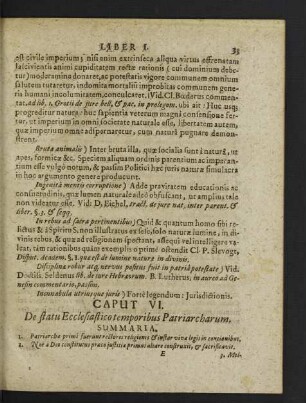 LIBER I. 33
est civile imperium; nisi enim extrinseca aliqua virtus effrenatam
lascivientis animi cupiditatem recte rationis (cui dominium debe-
tur) moderamina donaret, ac potestatis vigore communem omnium
salutem tutaretur, indomita mortalium improbitas communem ge-
neris humani incolumitatem, conculcaret. Vid. Cl. Buxderus commen-
tat. ad lib. 1. Grotii de jure bell. & pac. in prolegom. ubi ait: Huc usq;
progreditur natura: huc sapientia veterum magna consensione fer-
tur, ut imperium in omni societate naturale esse, libertatem autem,
quæ imperium omne adspernaretur, cum naturâ pugnare demon-
strent.
Bruta animalia) Inter bruta illa, quæ socialia sunt à naturâ, ut
apes, formicæ &c. Speciem aliquam ordinis parentium ac imparan-
tium esse vulgò notum, & passim Politici hæc juris naturæ simulacra
in huc argumento genere producunt.
Ingenitâ mentis corruptione) Adde pravitatem educationis ac
consuetudinis, quæ lumen naturale adeò obfuscant, ut amplius tale
non videatur esse. Vid. D. Eichel, tract. de jure nat. inter parent. &
liber. §. 5. & seqq.
In rebus ad sacra pertinentibus) Quid & quantum homo sibi re-
lictus & à Spiritu S. nonadjutus ex se ipso, solo naturæ lumine, in di-
vinis rebus, & quoad religionem spectant, assequi vel intelligere va-
leat, tam rationibus quàm exemplis optimè ostendit Cl. P. Slevogt.
Disput. academ. §. 1. quæ est de lumine naturæ in divinis.
Disciplina robur atq; nervus positus fuit in patriâ potestate) Vid.
Doctiss. Seldenus lib. de jure Hebræorum. B. Lutherus, in aureo ad Ge-
nesin commentario, passim.
In cunabula utriusque juris) Fortè legendum: Jurisdictionis.
CAPUT VI.
De statu Ecclesiastico temporibus Patriarcharum.
SUMMARIA.
1. Patriarchæ primi fuerunt rectores religionis & instar viva legis in concionibus,
2. Noë à Deo constitutus præco justitia primus altare construxit, & sacrificavit,
E 3. Mel-